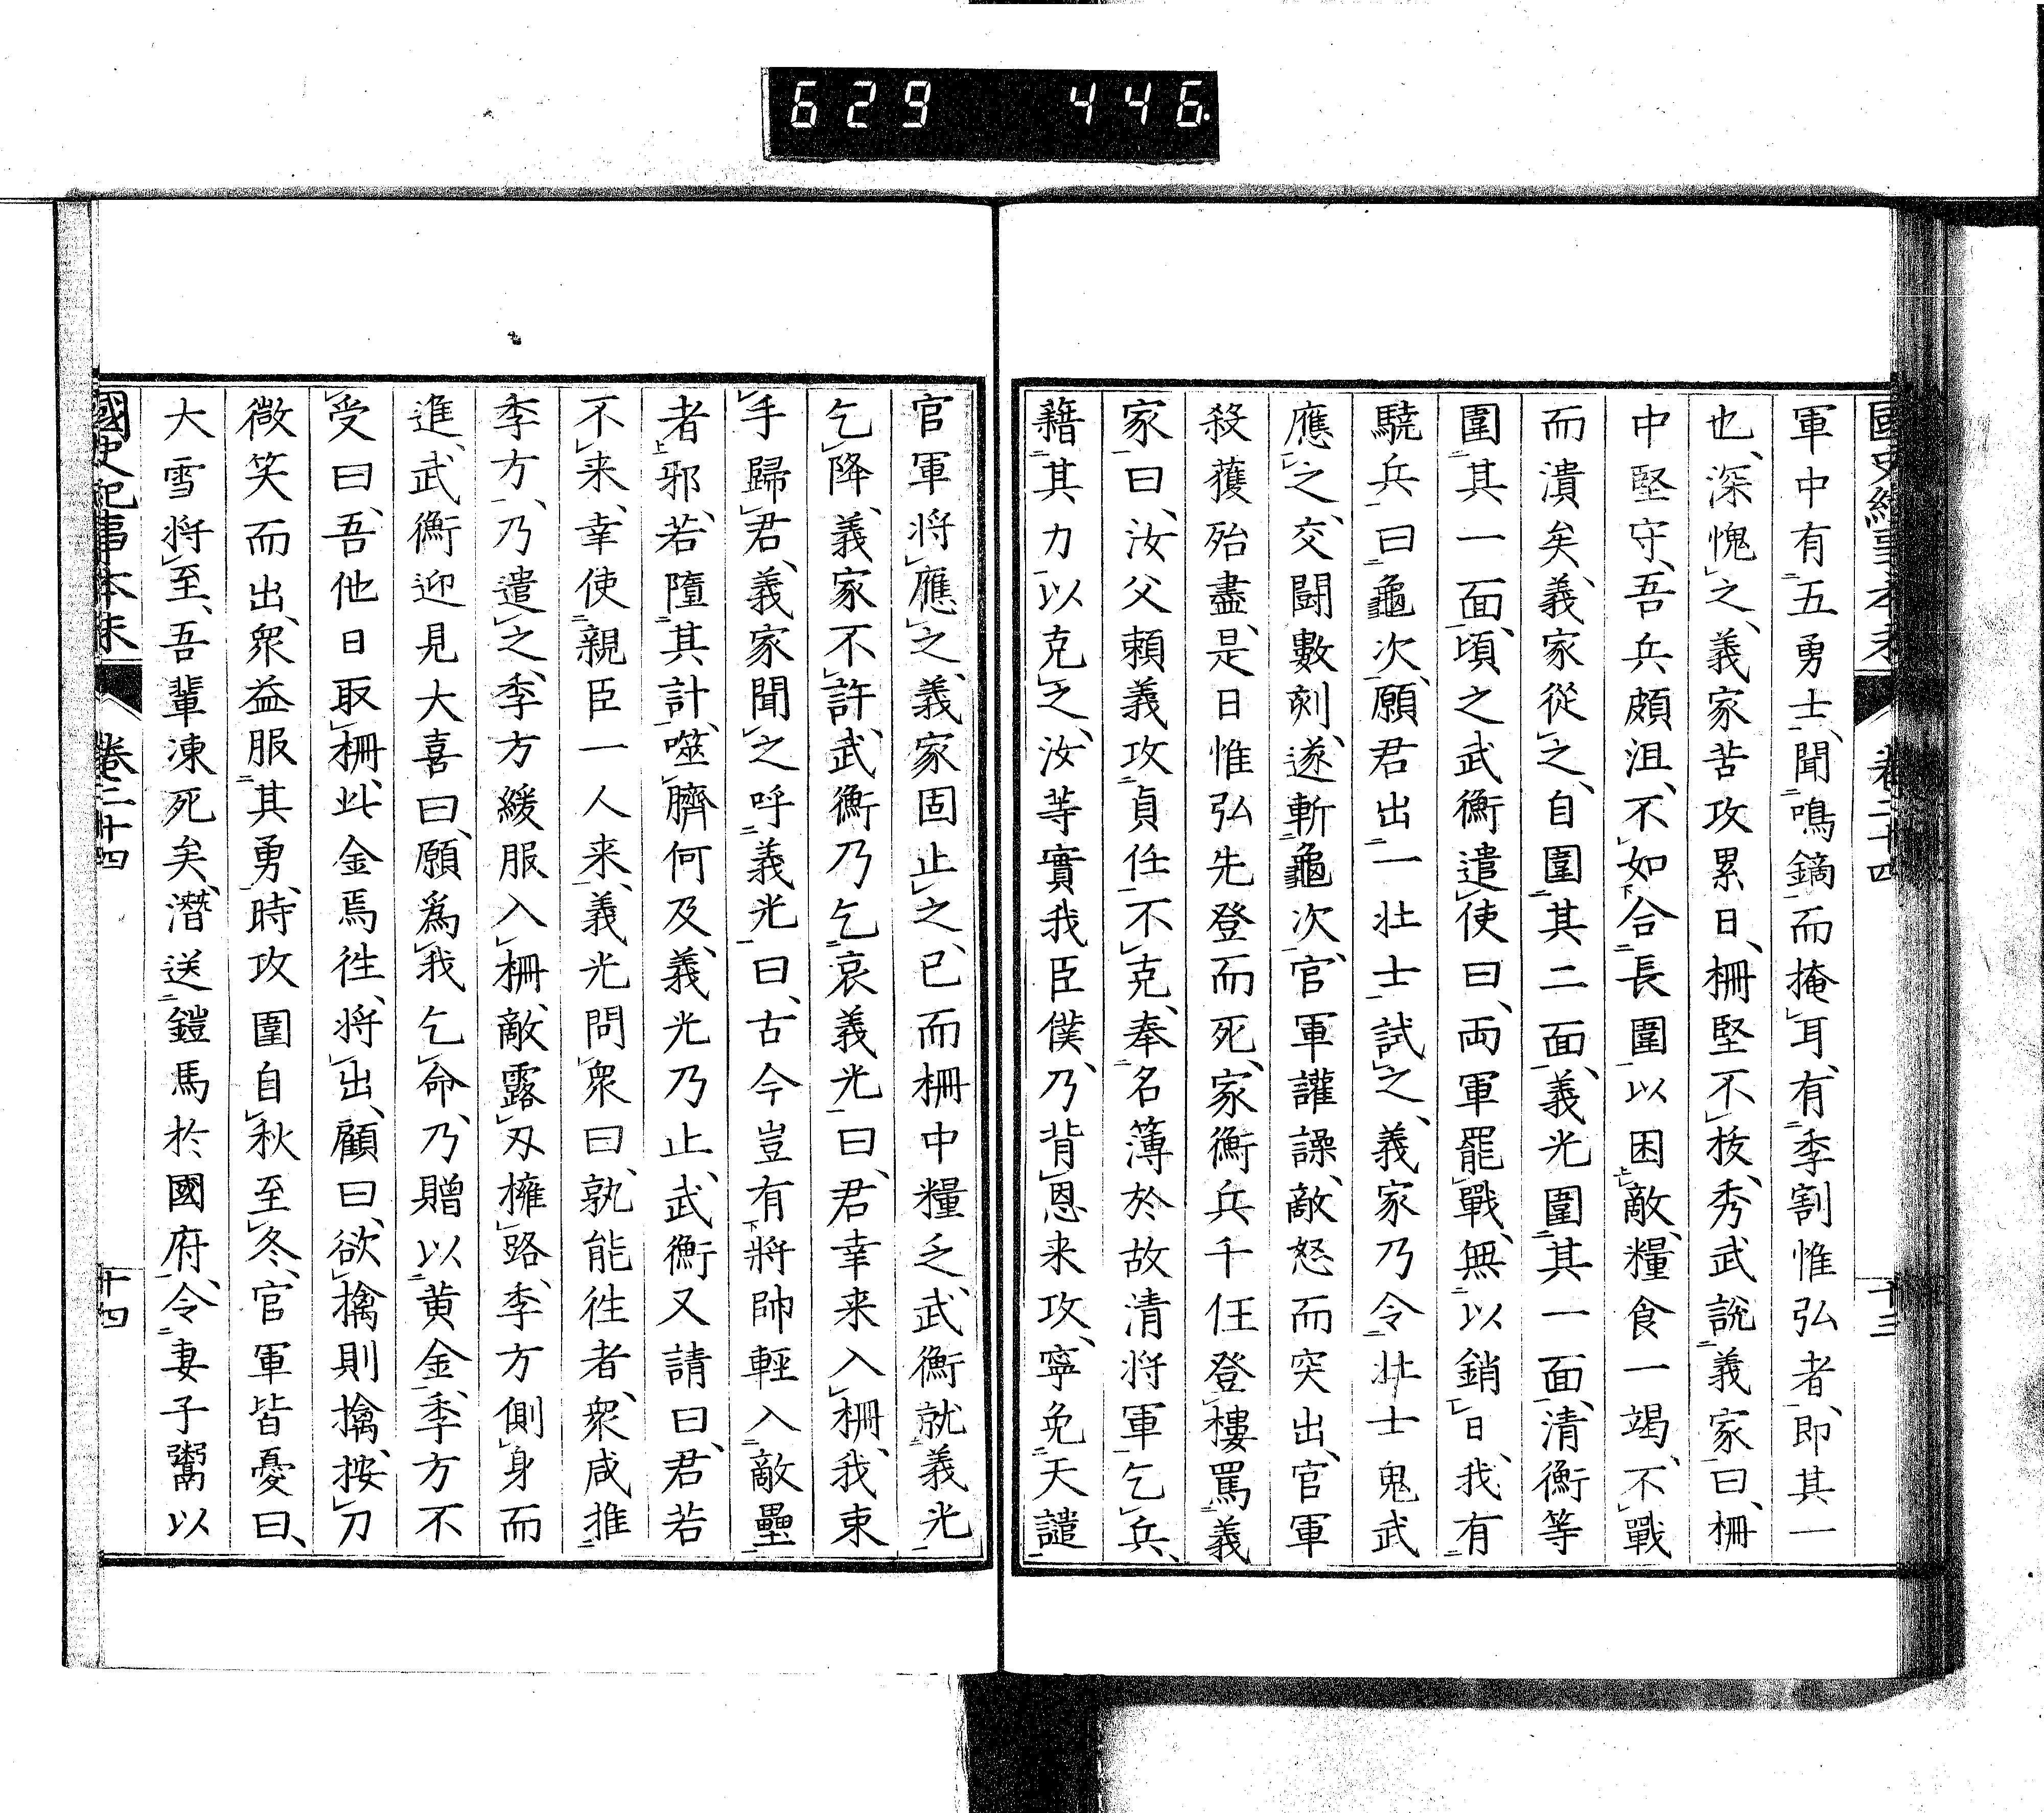 629 446
國史紀事本末 卷二十四 十三
軍中有五勇士、聞鳴鏑而掩耳、有季割惟弘者、即其一
也、深愧之、義家苦攻累日、柵堅不抜、秀武説義家曰、柵
中堅守、吾兵頗沮、不如合長圍以困敵、糧食一竭、不戰
而潰矣、義家從之、自圍其二面、義光圍其一面、清衡等
圍其一面、頃之武衡遣使曰、両軍罷戰、無以銷日、我有
驍兵曰龜次、願君出一壮士試之、義家乃令壮士鬼武
應之、交鬪數刻、遂斬龜次、官軍讙譟、敵怒而突出、官軍
殺獲殆盡、是日惟弘先登而死、家衡兵千任登樓罵義
家曰、汝父頼義攻貞任不克、奉名簿於故清将軍乞兵、
藉其力以克之、汝等實我臣僕、乃背恩来攻、寧免天譴
官軍将應之、義家固止之、已而柵中糧乏、武衡就義光
乞降、義家不許、武衡乃乞哀義光曰、君幸来入柵、我束
手歸君、義家聞之呼義光曰、古今豈有將帥輕入敵壘
者邪、若墮其計、噬臍何及、義光乃止、武衡又請曰、君若
不来、幸使親臣一人来、義光問衆曰、孰能往者、衆咸推
季方、乃遣之、季方緩服入柵、敵露刄擁路、季方側身而
進、武衡迎見大喜曰、願爲我乞命、乃贈以黄金、季方不
受曰、吾他日取柵、此金焉往、将出、顧曰、欲擒則擒、按刀
微笑而出、衆益服其勇、時攻圍自秋至冬、官軍皆憂曰、
大雪将至、吾輩凍死矣、潛送鎧馬於國府、令妻子鬻以
國史紀事本末 卷二十四 十四